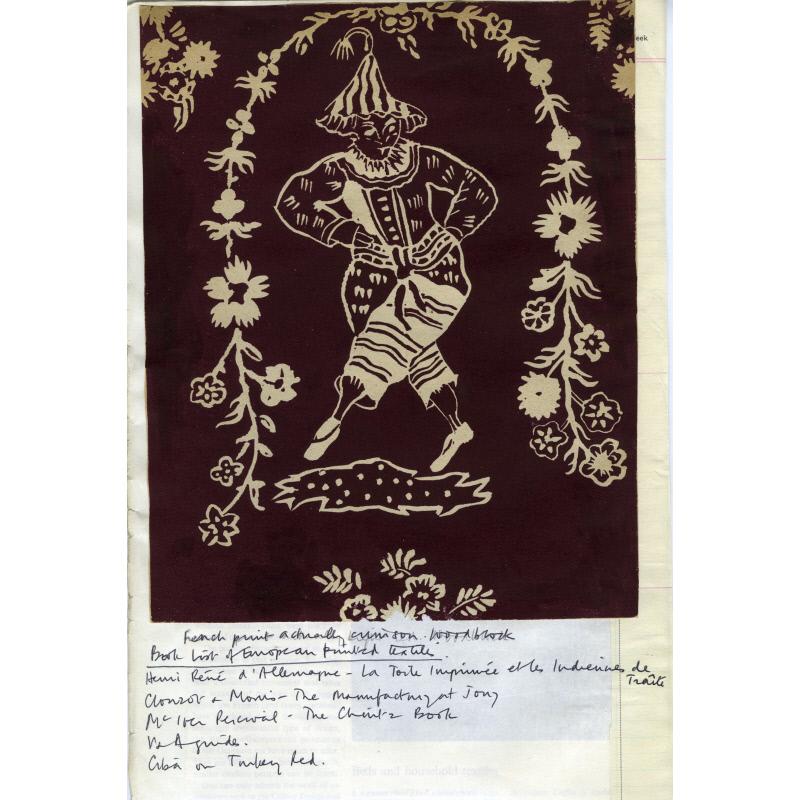 eek
French print actually crimson woodblock
Book List of European Printed Textile.
Henri René d'Allemagne - La Toile Imprimée et les Indiennes de
Traite
Clouzot & Morris - The Manufactory at Jouy
McIver Percival - The Chintz Book
V & A guide.
Ciba on Turkey Red.